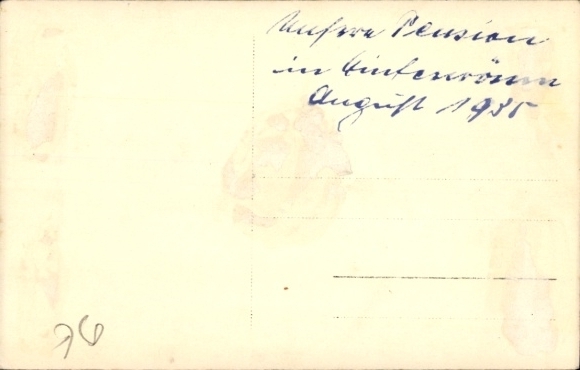 Unsere Pension
in Hinterrönn
August 1935
76